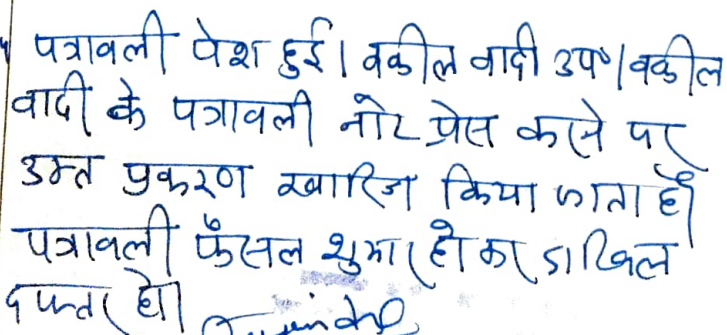 पत्रावली पेश हुई। वकील वादी उप०। वकील
वादी के पत्रावली नोट प्रेस करने पर
उक्त प्रकरण खारिज किया जाता है।
पत्रावली फैसल शुमार होकर दाखिल
दफ्तर हो।